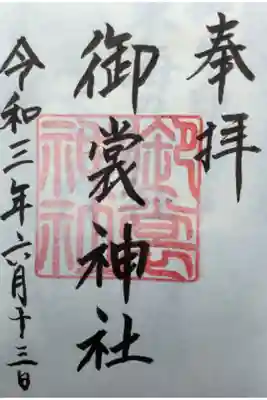 奉拝
御裳神社
令和三年六月十三日